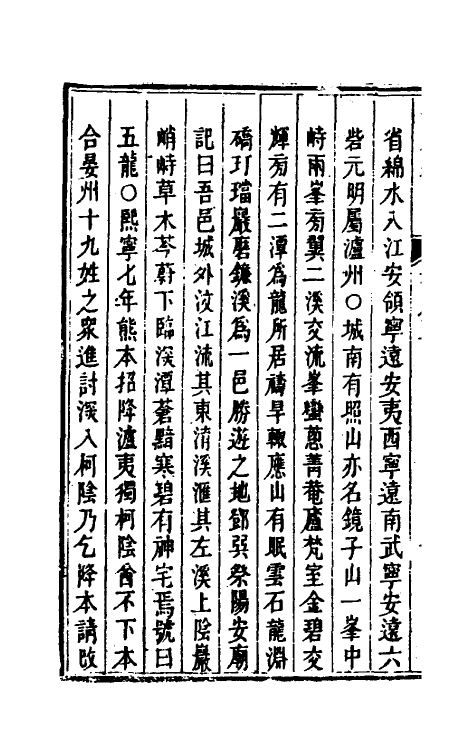 省綿水入江安領寧遠安夷西寧遠南武寧安遠六
砦元明屬瀘州○城南有照山亦名鏡子山一峯中
峙兩峯旁翼二溪交流峯巒蔥菁菴廬梵室金碧交
輝旁有二潭爲龍所居禱旱輒應山有眠雲石龍淵
礄玎璫巖磨鐮溪爲一邑勝遊之地鄧巽祭陽安廟
記曰吾邑城外汶江流其東淯溪滙其左溪上陰巖
峭峙草木芩蔚下臨深潭蒼黯寒碧有神宅焉號曰
五龍○熙寧七年熊本招降瀘夷獨柯陰酋不下本
合晏州十九姓之衆進討深入柯陰乃乞降本請改